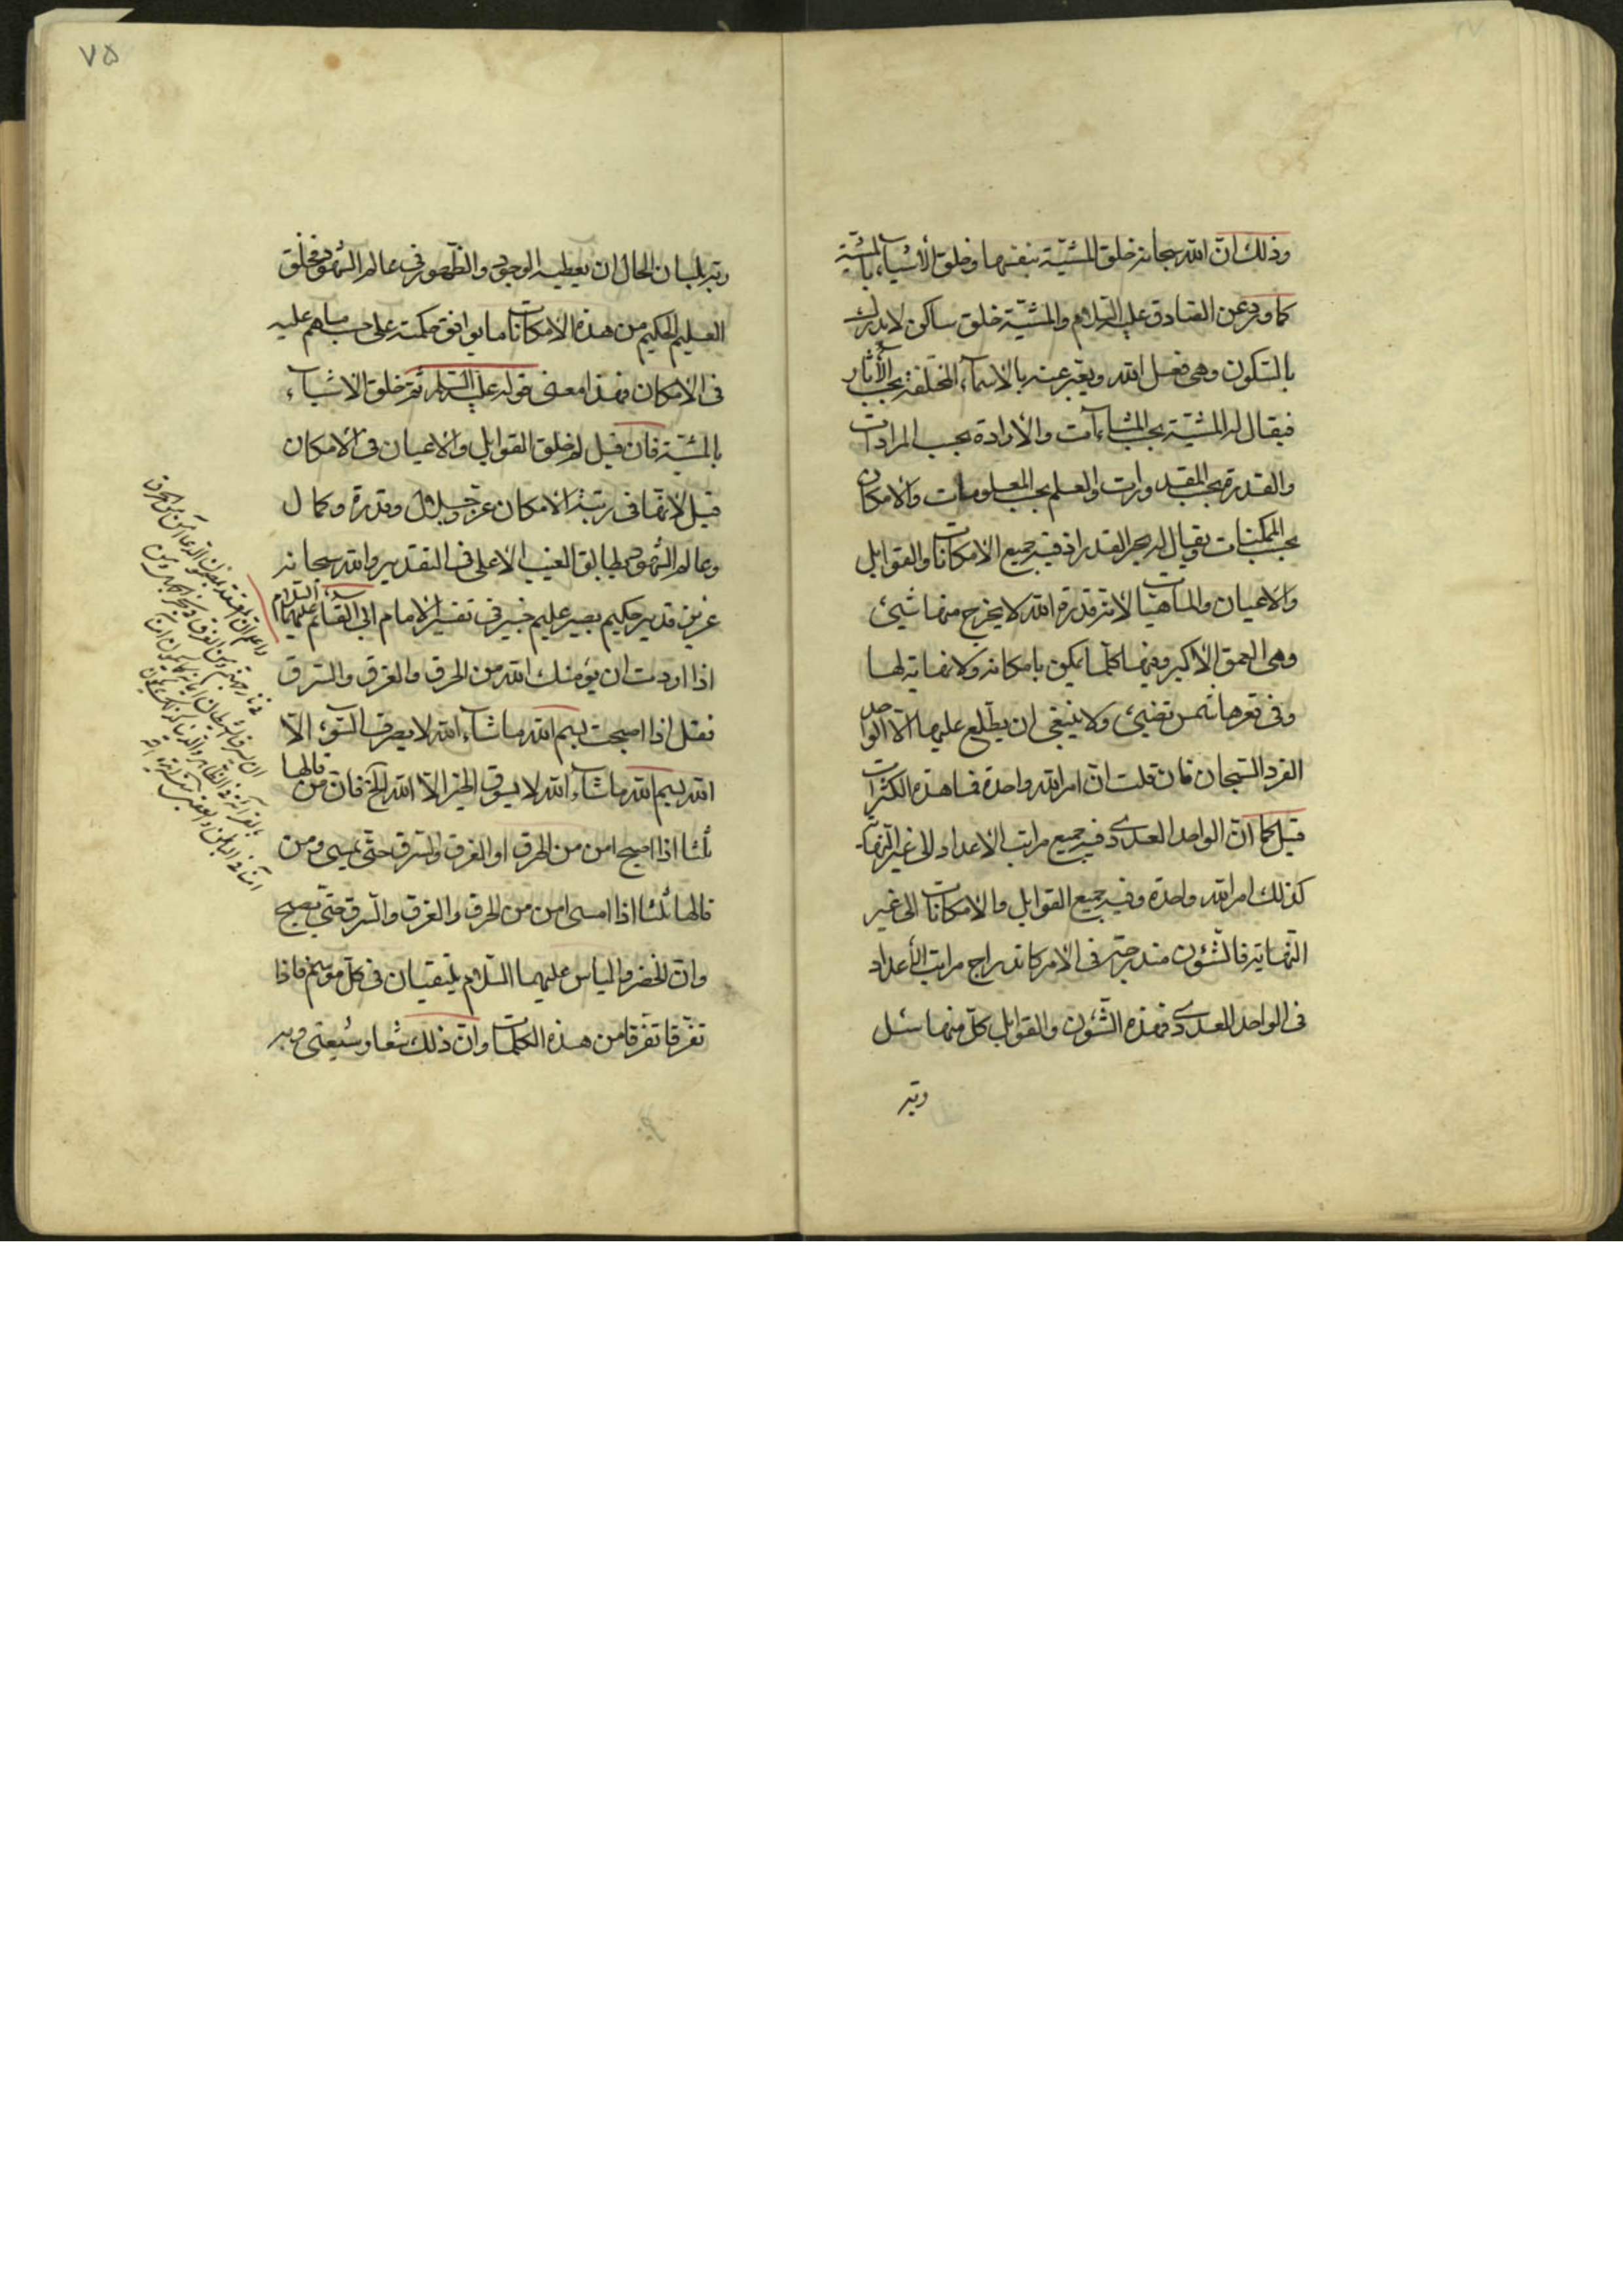 وذلك انّ الله سبحانه خلق المشيّة بنفسها وخلق الأشياء بالمشيّة
كما ورد عن الصادق عليه السّلام والمشيّة خلق ساكن لا يدرك
بالسّكون وهى فعل الله ويعبّر عنه بالاسمآء المختلفة بحسب الأثار
فيقال له المشيّة بحسب المشاءآت والأرادة بحسب المرادات
والقدرة بحسب المقدورات والعلم بحسب المعلومات والامكان
بحسب الممكنات ويقال له بحر القدر اذ فيه جميع الامكانات والقوابل
والاعيان والماهيّات لانّه قدرة الله لا يخرج منها شيئ
وهى العمق الأكبر وفيها كلّما يمكن بامكانه ولا نهاية لها
وفى قعرها شمس تضيئ ولا ينبغى ان يطّلع عليها الّا الواحد
الفرد السّبحان فان قلت انّ امر الله واحدة فما هذه الكثرات
قيل كما انّ الواحد العددى فيه جميع مراتب الاعداد الى غير النّهاية
كذلك امر الله واحدة وفيه جميع القوابل والامكانات الى غير
النّهاية فالشّئون مندرجة فى الامر كاندراج مراتب الأعداد
فى الواحد العددى فهذه الشّئون والقوابل كلّ منها سئل
ربّه
٧٥
ربّه بلسان الحال ان يعطيه الوجود والظّهور فى عالم الشّهود فخلق
العليم الحكيم من هذه الامكانات ما يوافق حكمته على حسب ما هم عليه
فى الامكان فهذا معنى قوله عليه السّلم ثمّ خلق الاشيآء
بالمشيّة فان قيل لم خلق القوابل والاعيان فى الامكان
قيل لانّها فى رتبة الامكان عزّ وجلال وقدرة وكمال
وعالم الشّهود يطابق الغيب الاعلى فى التقدير والله سبحانه
عزيز قدير حكيم بصير عليم خبير فى تفسير الامام ابى القائم عليهما السّلام
اذا اردت ان يؤمنك الله من الحرق والغرق والسّرق
فقل اذا اصبحت بسم الله ماشآء الله لا يصرف السّوء الّا
الله بسم الله ماشآء الله لا يسوق الخير الّا الله الخ فانّ من قالها
ثلثا اذا اصبح امن من الحرق او الغرق والسّرق حتّى يمسى ومن
قالها ثلثا اذا امسى امن من الحرق والغرق والسّرق حتّى يصبح
وانّ الخضر والياس عليهما السّلام يلتقيان فى كلّ موسم فاذا
تفرّقا تفرّقا من هذه الكلمات وانّ ذلك شعار شيعتى وبه